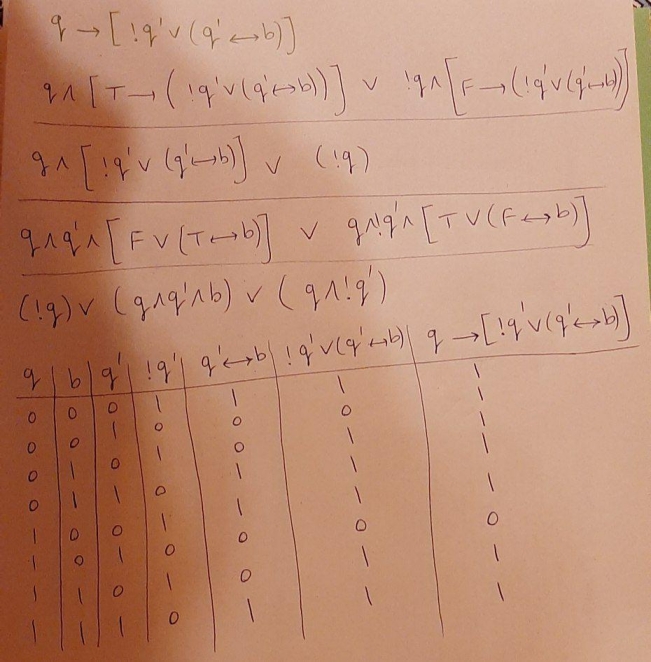 q → [ !q' ∨ (q' ↔ b)]
q ∧ [ T → ( !q' ∨ (q' ↔ b))] ∨ !q ∧ [F → (!q' ∨ (q' ↔ b))]
q ∧ [ !q' ∨ (q' ↔ b)] ∨ (!q)
q ∧ q' ∧ [ F ∨ (T ↔ b)] ∨ q ∧ !q' ∧ [ T ∨ (F ↔ b)]
(!q) ∨ (q ∧ q' ∧ b) ∨ ( q ∧ !q')
q | b | q' | !q' | q' ↔ b | !q' ∨ (q' ↔ b) | q → [!q' ∨ (q' ↔ b)]
0 0 0 1 1 1 1
0 0 1 0 0 0 1
0 1 0 1 0 1 1
0 1 1 0 1 1 1
1 0 0 1 1 1 1
1 0 1 0 0 0 0
1 1 0 1 0 1 1
1 1 1 0 1 1 1